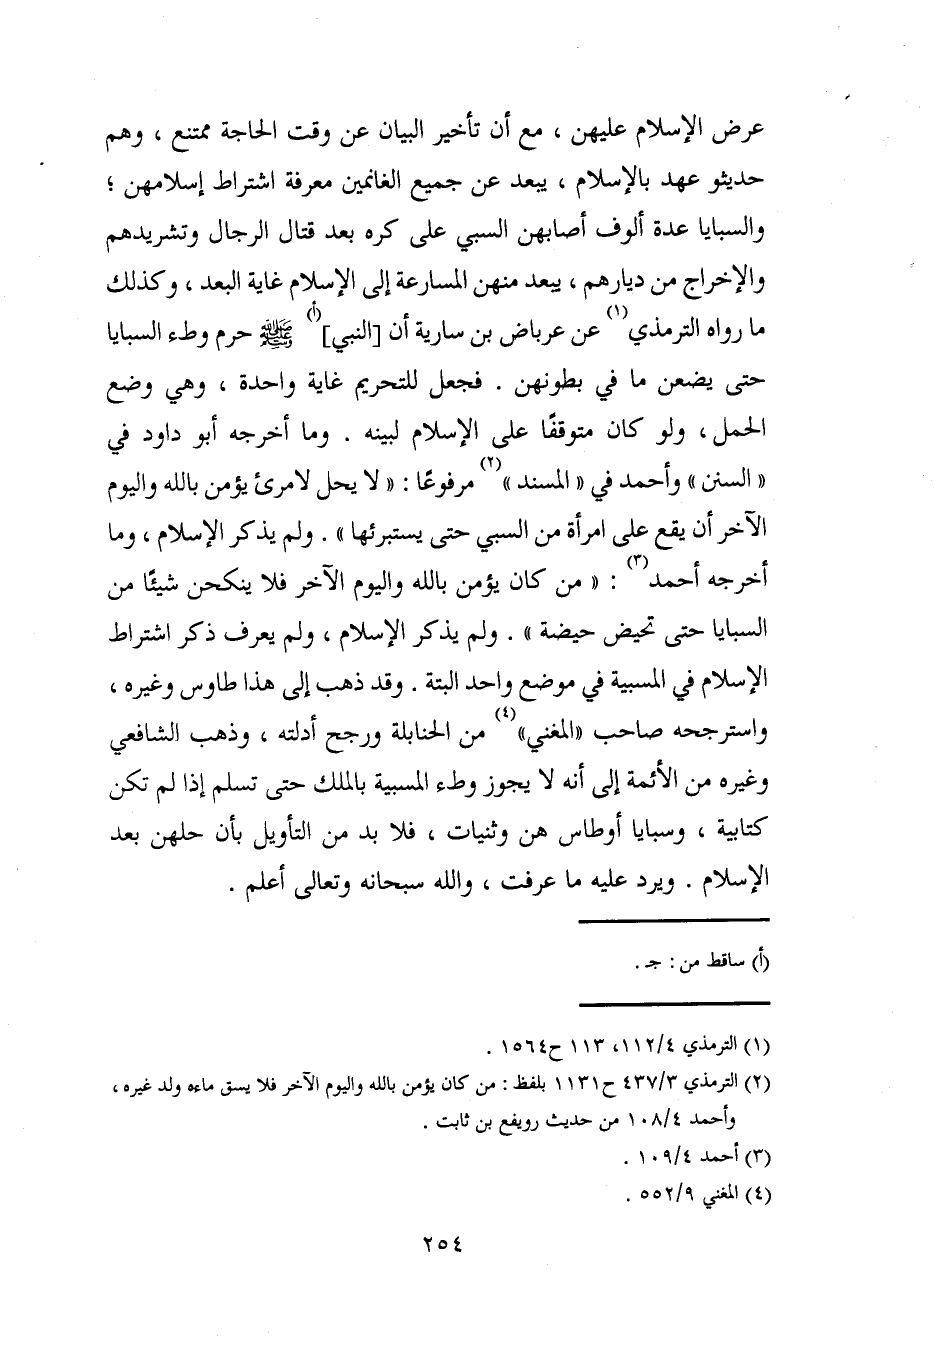 عرض الإسلام عليهن ، مع أن تأخير البيان عن وقت الحاجة ممتنع ، وهم
حديثو عهد بالإسلام ، يبعد عن جميع الغانمين معرفة اشتراط إسلامهن ؛
والسبايا عدة ألوف أصابهن السبي على كره بعد قتال الرجال وتشريدهم
والإخراج من ديارهم ، يبعد منهن المسارعة إلى الإسلام غاية البعد ، وكذلك
ما رواه الترمذي(١) عن عرباض بن سارية أن [النبي](أ) ﷺ حرم وطء السبايا
حتى يضعن ما في بطونهن . فجعل للتحريم غاية واحدة ، وهي وضع
الحمل ، ولو كان متوقفًا على الإسلام لبينه . وما أخرجه أبو داود في
« السنن » وأحمد في « المسند »(٢) مرفوعًا : « لا يحل لامرئ يؤمن بالله واليوم
الآخر أن يقع على امرأة من السبي حتى يستبرئها » . ولم يذكر الإسلام ، وما
أخرجه أحمد(٣) : « من كان يؤمن بالله واليوم الآخر فلا ينكحن شيئًا من
السبايا حتى تحيض حيضة » . ولم يذكر الإسلام ، ولم يعرف ذكر اشتراط
الإسلام في المسبية في موضع واحد البتة . وقد ذهب إلى هذا طاوس وغيره ،
واسترجحه صاحب «المغني»(٤) من الحنابلة ورجح أدلته ، وذهب الشافعي
وغيره من الأئمة إلى أنه لا يجوز وطء المسبية بالملك حتى تسلم إذا لم تكن
كتابية ، وسبايا أوطاس هن وثنيات ، فلا بد من التأويل بأن حلهن بعد
الإسلام . ويرد عليه ما عرفت ، والله سبحانه وتعالى أعلم .
(أ) ساقط من : جـ .
(١) الترمذي ١١٢/٤، ١١٣ ح١٥٦٤ .
(٢) الترمذي ٤٣٧/٣ ح١١٣١ بلفظ : من كان يؤمن بالله واليوم الآخر فلا يسق ماءه ولد غيره ،
وأحمد ١٠٨/٤ من حديث رويفع بن ثابت .
(٣) أحمد ١٠٩/٤ .
(٤) المغني ٥٥٢/٩ .
٢٥٤